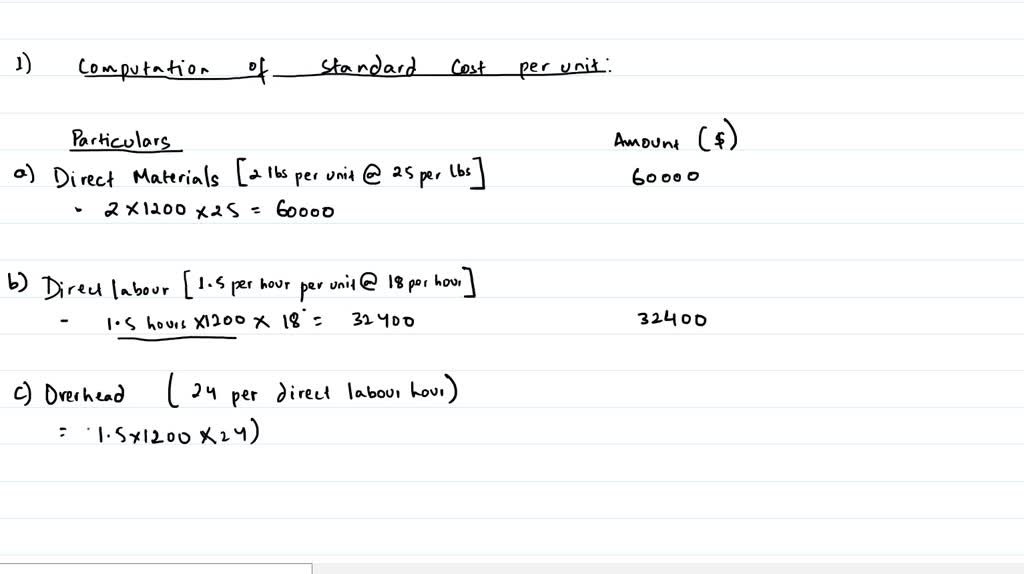 1) Computation of standard cost per unit:
Particulars Amount ($)
a) Direct Materials [2 lbs per unit @ 25 per lbs] 60000
- 2 x 1200 x 25 = 60000
b) Direct labour [1.5 per hour per unit @ 18 per hour]
- 1.5 hours x1200 x 18 = 32400 32400
c) Overhead ( 24 per direct labour hour)
= 1.5x1200 x 24)